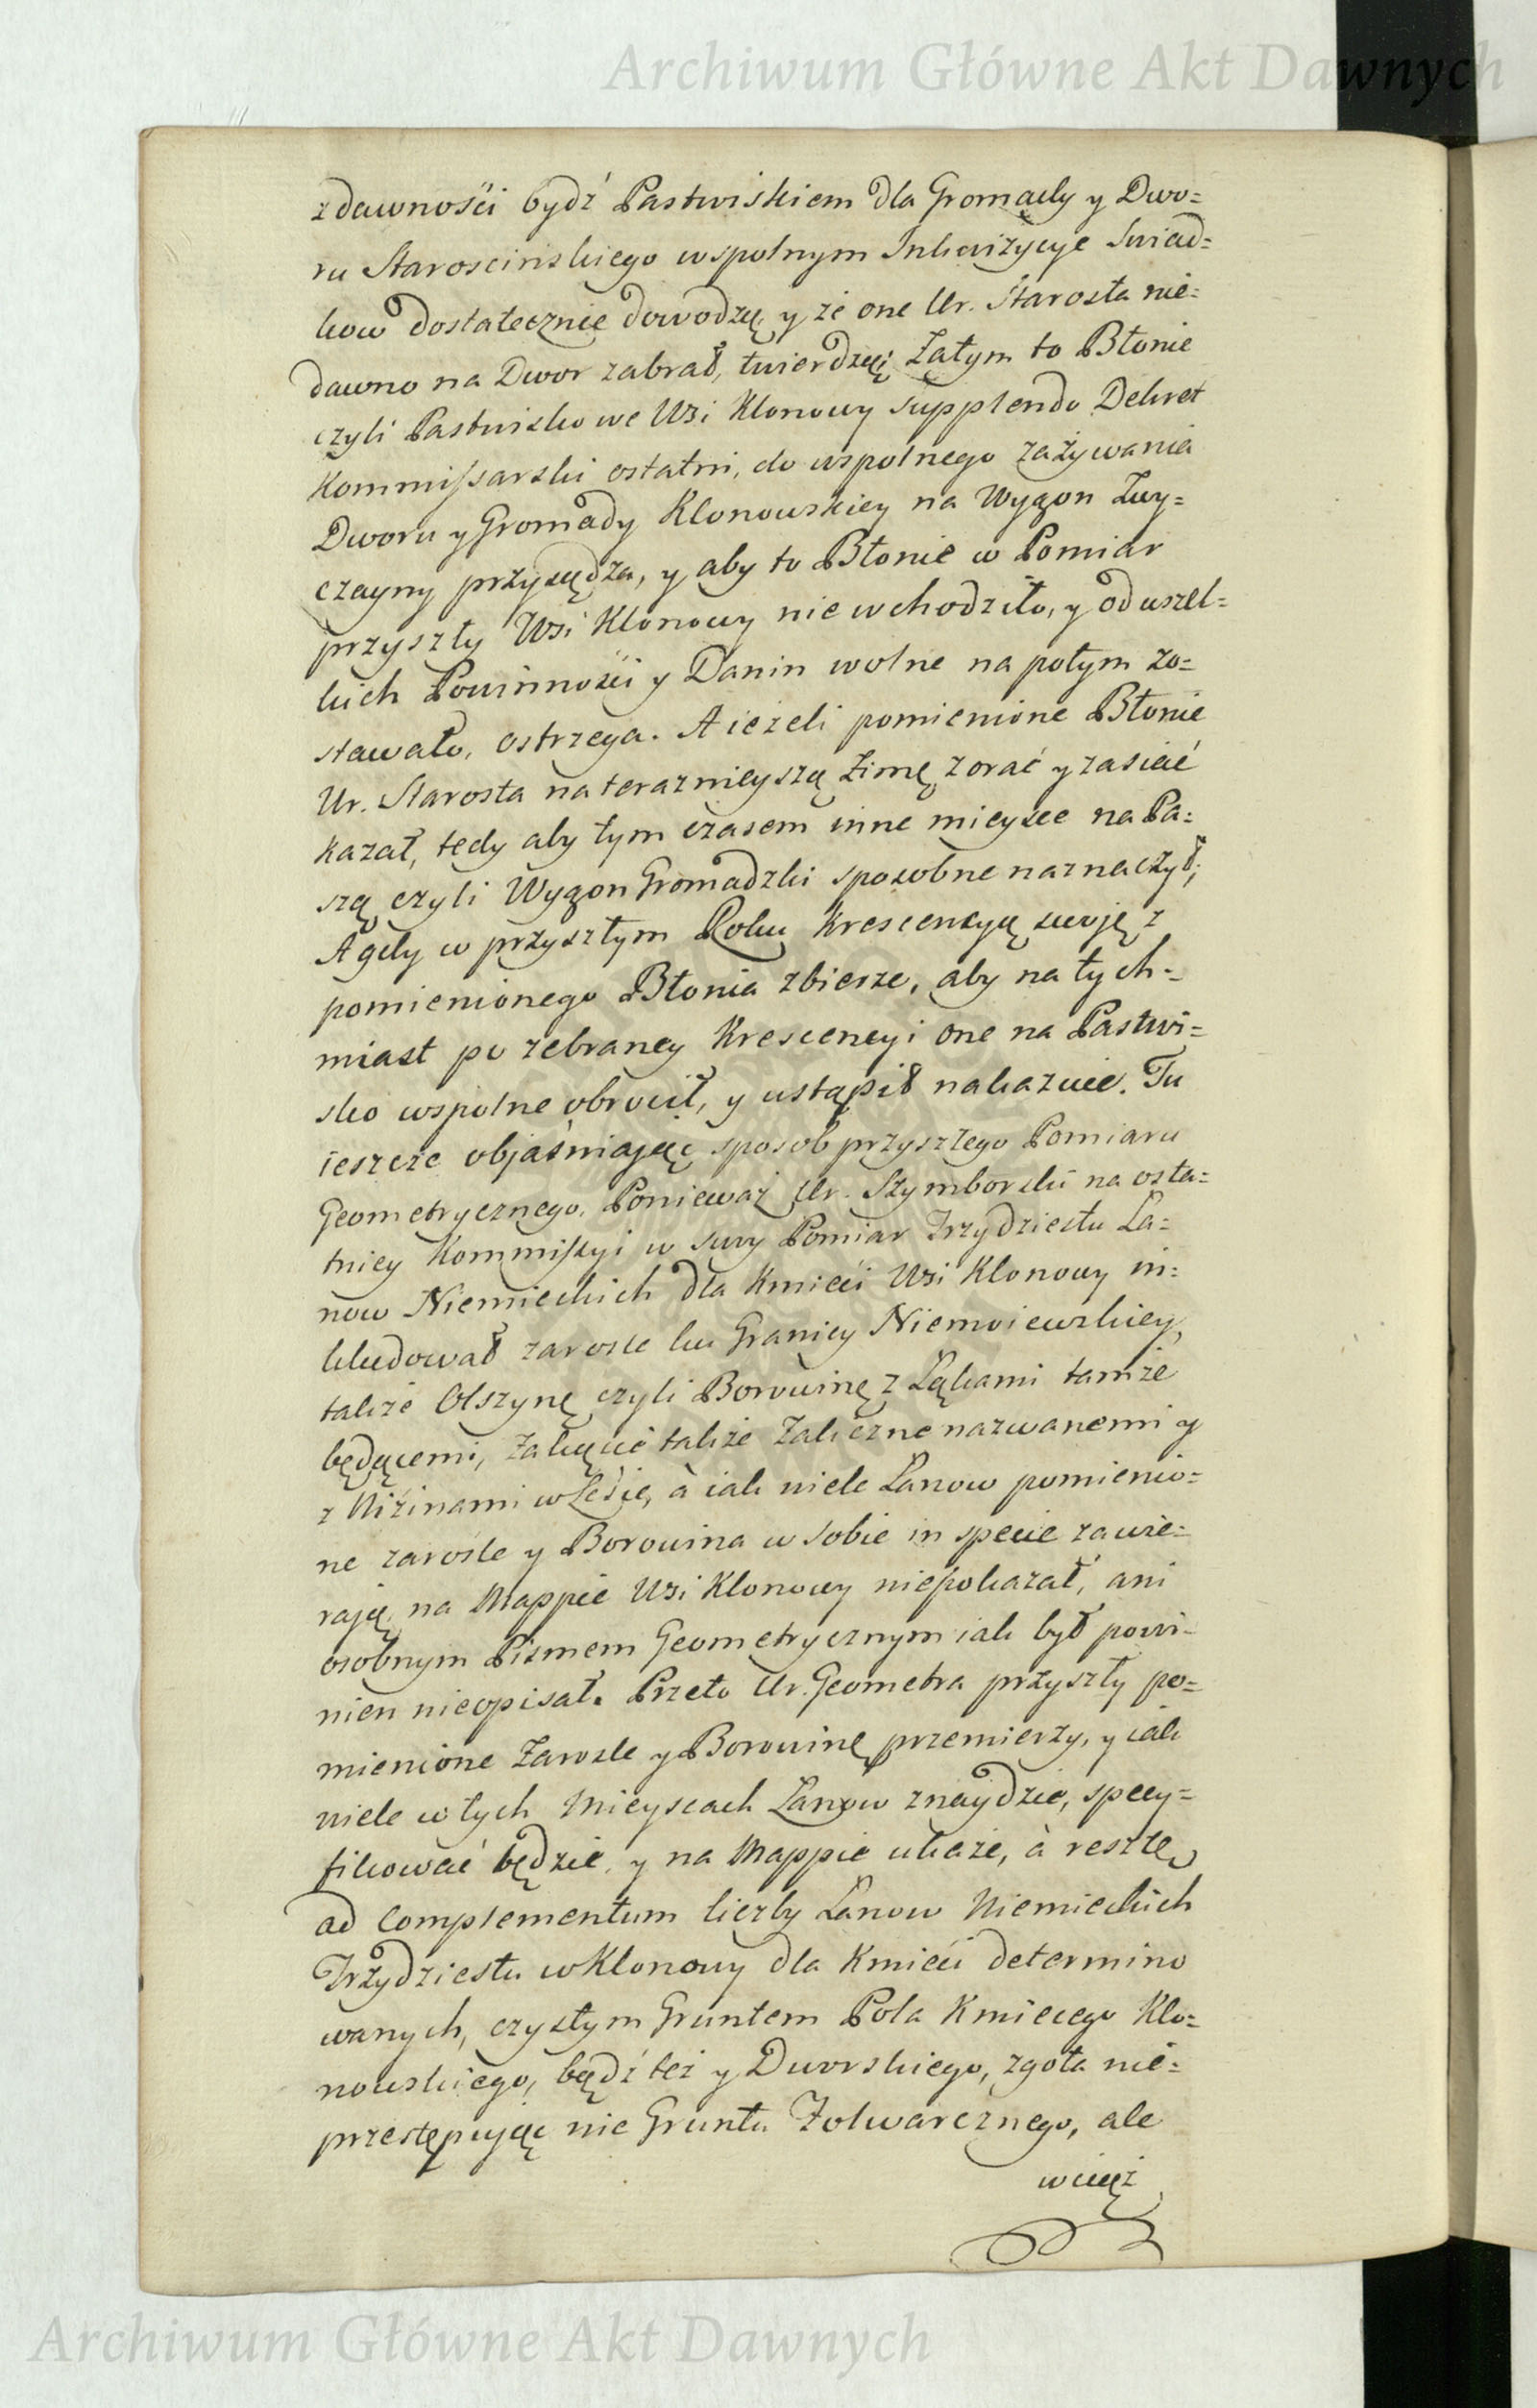 Archiwum Główne Akt Dawnych
zdawności bydź Pastwiskiem dla Gromady y Dwo=
ru Starościńskiego wspolnym Inkwizycye Swiad=
kow dostatecznie dowodzą, y że one Ur. Starosta nie=
dawno na Dwor zabrał, twierdzą; Zatym to Błonie
czyli Pastwisko we Wsi Klonowy supplendo Dekret
Kommissarski ostatni, do wspolnego zażywania
Dworu y Gromady Klonowskiey na Wygon Zwy=
czayny przysądza, y aby to Błonie w Pomiar
przyszły Wsi Klonowy nie wchodziło, y od wszel=
kich Powinności y Danin wolne na potym zo=
stawało, ostrzega. A ieżeli pomienione Błonie
Ur. Starosta na teraznieyszą Zimę zorać y zasiać
kazał, tedy aby tym czasem inne mieysce na Pa=
szą czyli Wygon Gromadzki sposobne naznaczył;
A gdy w przyszłym Roku Krescencyą swoję z
pomienionego Błonia zbierze, aby na tych=
miast po zebraney Krescencyi one na Pastwi=
sko wspolne obrocił, y ustąpił nakazuie. Tu
ieszcze objaśniając sposob przyszłego Pomiaru
Geometrycznego, Ponieważ Ur. Szymborski na osta=
tniey Kommissyi w swoy Pomiar Trzydziestu Ła=
now Niemieckich dla Kmieci Wsi Klonowy in=
kludował zarosle ku Granicy Niemoiewskiey,
także Olszynę czyli Borowinę z Łąkami tamże
będącemi, Zakącie także Zaliczne nazwanemi y
z Niżinami w Lesie, à iak wiele Łanow pomienio=
ne zarośle y Borowina w sobie in specie zawie=
rają, na Mappie Wsi Klonowy niepokazał, ani
osobnym Pismem Geometrycznym iak był powi=
nien nieopisał. Przeto Ur. Geometra przyszły po=
mienione Zarosle y Borowinę przemierzy, y iak
wiele w tych Mieyscach Łanow znaydzie, specy=
fikować będzie, y na Mappie ukaże, à resztę
ad Complementum liczby Łanow Niemieckich
Trzydziestu w Klonowy dla Kmieci determino
wanych, czystym Gruntem Pola Kmiecego Klo=
nowskiego, bądź też y Dworskiego, zgoła nie=
przestępując nic Gruntu Folwarcznego, ale
wciąż
Archiwum Główne Akt Dawnych